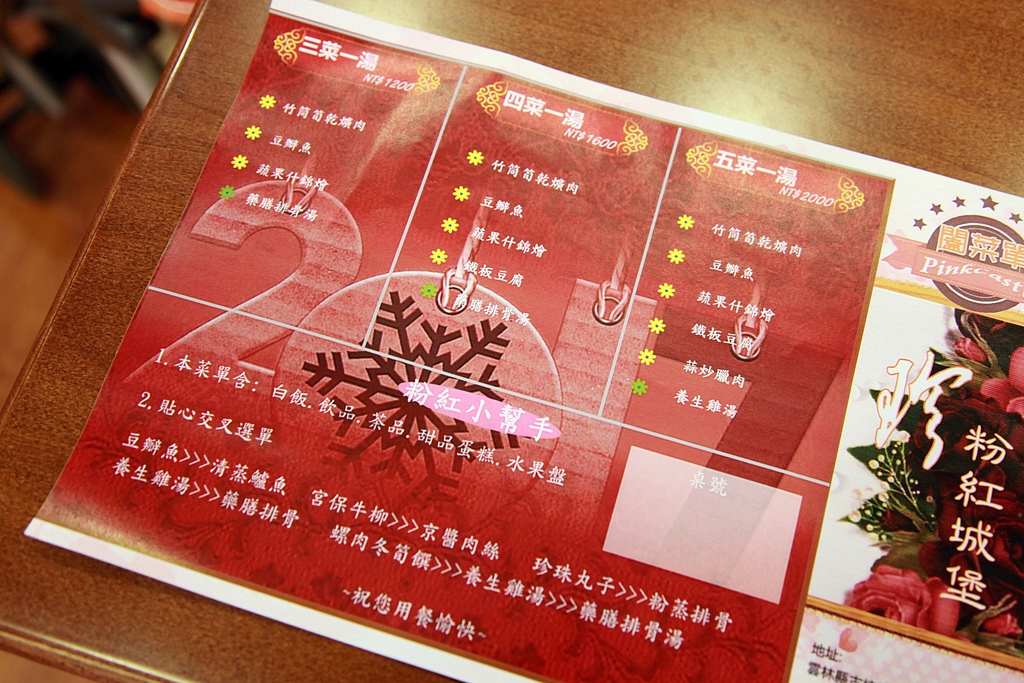 三菜一湯
NT$1200
竹筒筍乾爌肉
豆瓣魚
蔬果什錦燴
藥膳排骨湯
四菜一湯
NT$1600
竹筒筍乾爌肉
豆瓣魚
蔬果什錦燴
鐵板豆腐
藥膳排骨湯
五菜一湯
NT$2000
竹筒筍乾爌肉
豆瓣魚
蔬果什錦燴
鐵板豆腐
蒜炒臘肉
養生雞湯
粉紅小幫手
1.本菜單含:白飯.飲品.茶品.甜品蛋糕.水果盤
2.貼心交叉選單
豆瓣魚>>>清蒸鱸魚 宮保牛柳>>>京醬肉絲 珍珠丸子>>>粉蒸排骨
養生雞湯>>>藥膳排骨 螺肉冬筍饌>>>養生雞湯>>>藥膳排骨湯
~祝您用餐愉快~
桌號
闔菜單
粉紅城堡
地址:
雲林縣古